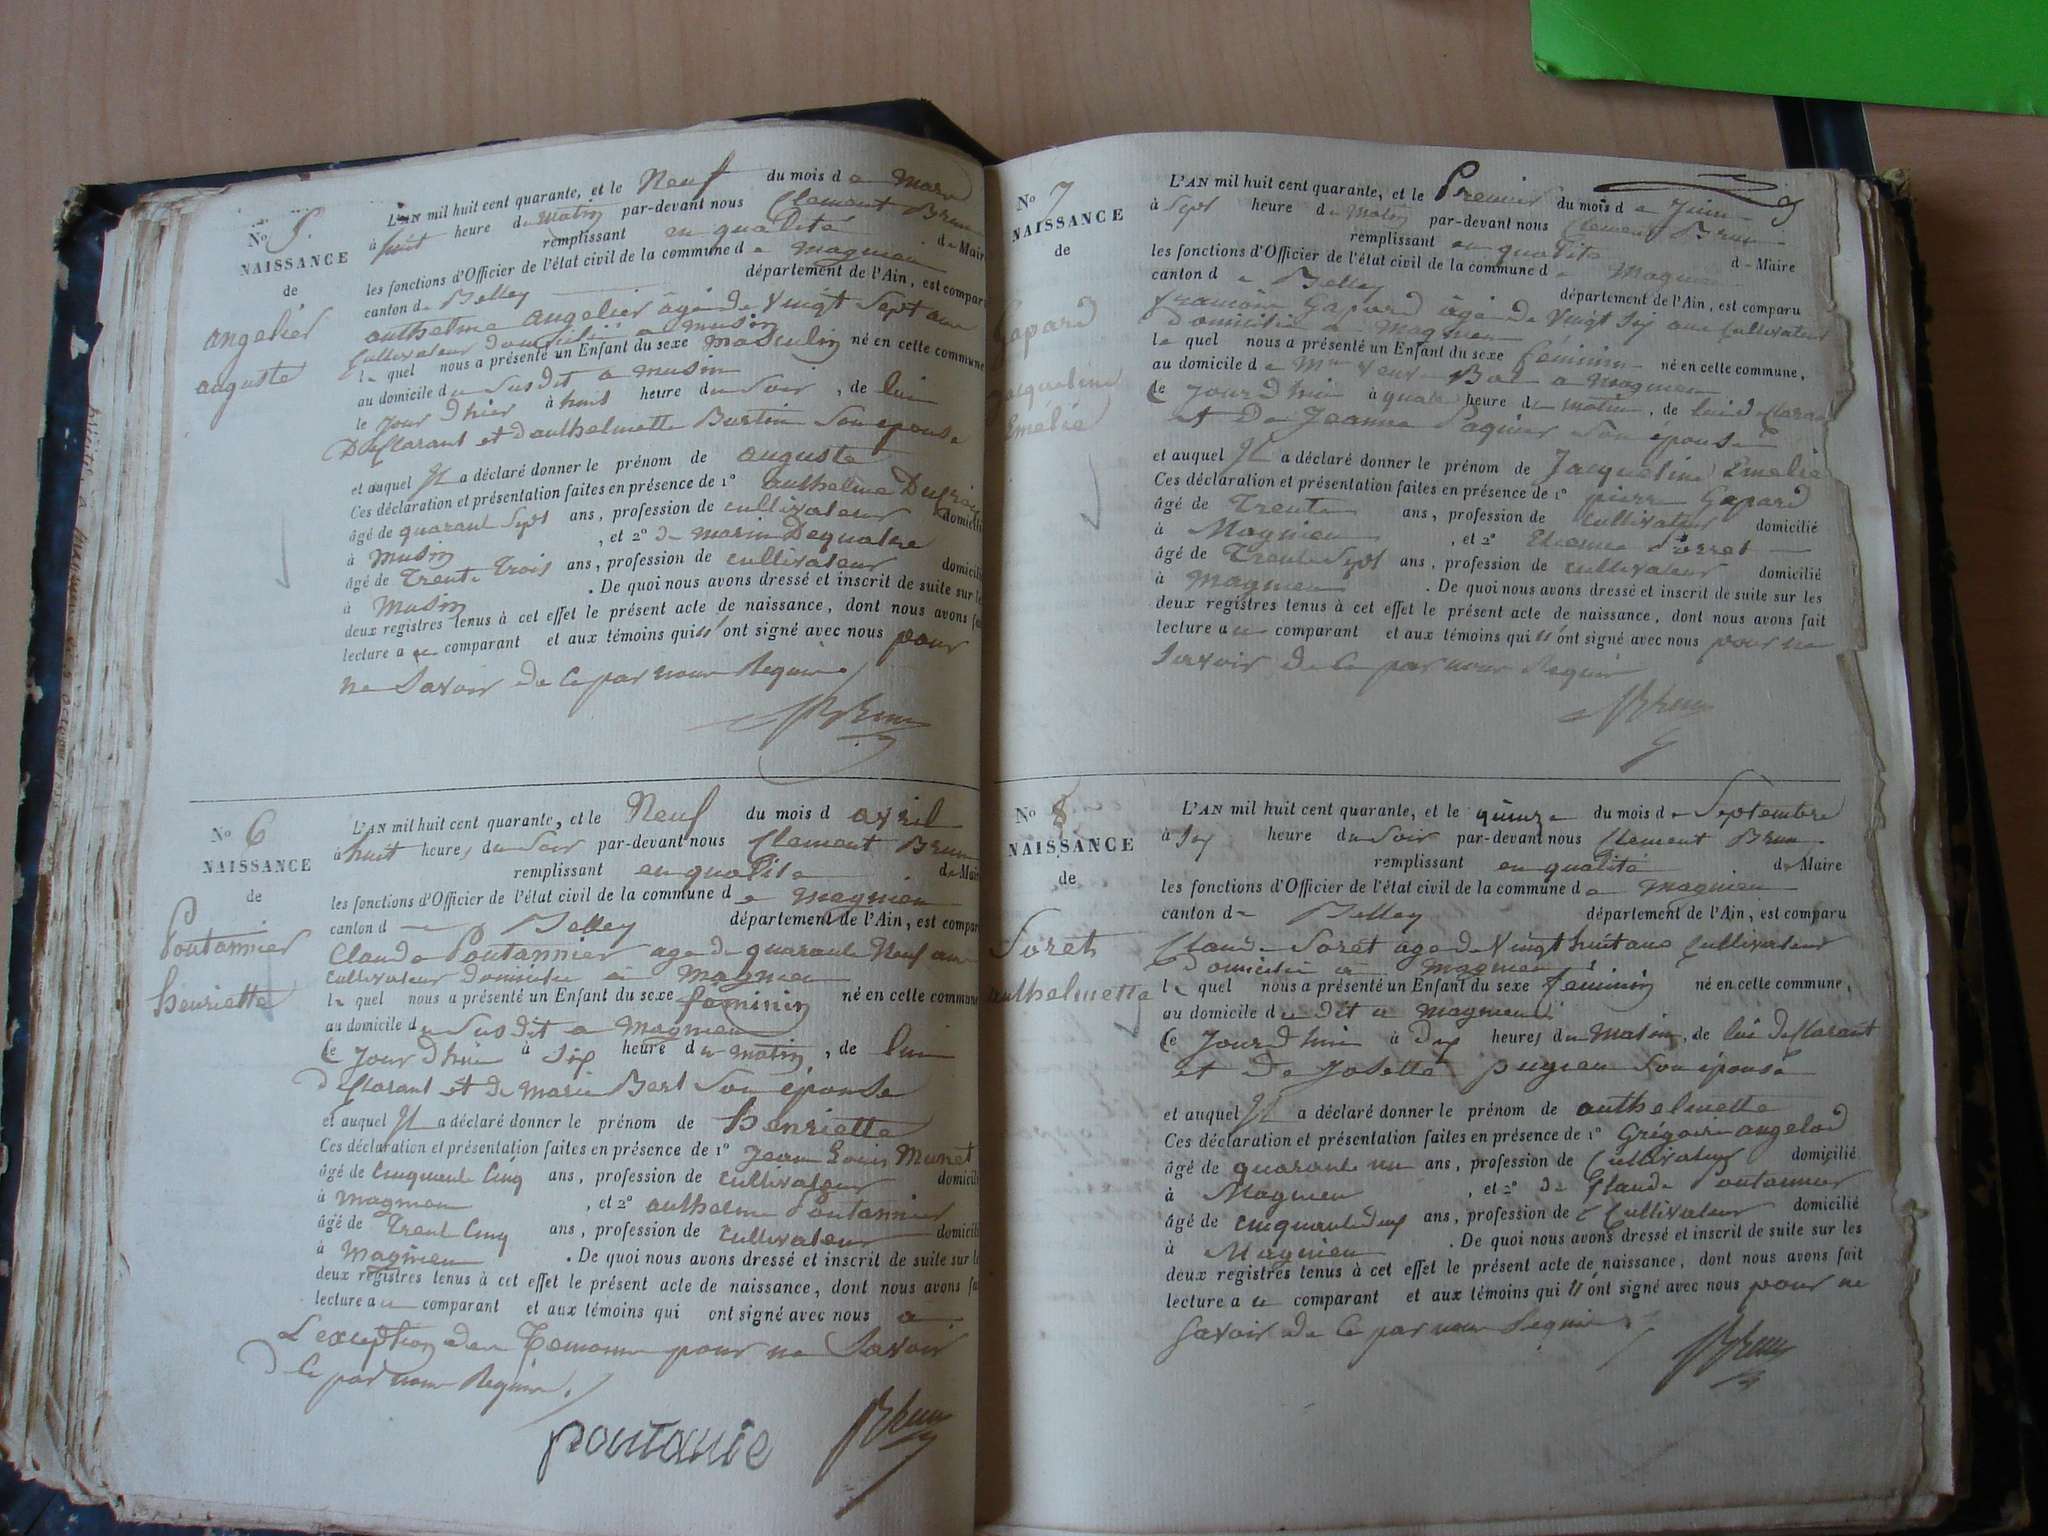 No 5.
NAISSANCE
de
angelier
auguste
L'AN mil huit cent quarante, et le Neuf du mois de Mars
à huit heure du Matin par-devant nous Clement Brun
remplissant en qualité de Maire
les fonctions d'Officier de l'état civil de la commune de Magnieu
canton de Belley département de l'Ain, est comparu
anthelme angelier âgé de Vingt Sept ans
Cultivateur domicilié a musin
le quel nous a présenté un Enfant du sexe masculin né en cette commune
au domicile du Susdit a musin
le Jour d'hier à huit heure du Soir, de lui
Déclarant et d'anthelmette Burtin Son épouse
et auquel Il a déclaré donner le prénom de auguste
Ces déclaration et présentation faites en présence de 1° anthelme
âgé de quarant Sept ans, profession de cultivateur domicilié
à Musin, et 2° de marin Dequatre
âgé de Trente Trois ans, profession de cultivateur domicilié
à Musin. De quoi nous avons dressé et inscrit de suite sur les
deux registres tenus à cet effet le présent acte de naissance, dont nous avons fait
lecture au comparant et aux témoins qui n'ont signé avec nous pour
ne Savoir de Ce par nous Requis
Brun
No 6
NAISSANCE
de
Poutannier
henriette
L'AN mil huit cent quarante, et le Neuf du mois d avril
à huit heures du Soir par-devant nous Clement Brun
remplissant en qualité de Maire
les fonctions d'Officier de l'état civil de la commune de magnieu
canton de Belley département de l'Ain, est comparu
Claude Poutannier age de quarante Neuf ans
cultivateur domicilié à Magnieu
le quel nous a présenté un Enfant du sexe feminin né en cette commune
au domicile du Susdit a Magnieu
le Jour d'hui à Six heure du matin, de lui
déclarant et de marie Bert Son épouse
et auquel Il a déclaré donner le prénom de henriette
Ces déclaration et présentation faites en présence de 1° Jean Louis Munet
âgé de Cinquante Cinq ans, profession de cultivateur domicilié
à Magnieu, et 2° anthelme Poutannier
âgé de Trent Cinq ans, profession de cultivateur domicilié
à Magnieu. De quoi nous avons dressé et inscrit de suite sur les
deux registres tenus à cet effet le présent acte de naissance, dont nous avons fait
lecture au comparant et aux témoins qui ont signé avec nous à
L'exception den Temoins pour ne Savoir
de Ce par nous Requis.
poutanie Brun
No 7
NAISSANCE
de
Gapard
Jacqueline
Emélie
L'AN mil huit cent quarante, et le Premier du mois de Juin
à Sept heure du Matin par-devant nous Clement Brun
remplissant en qualité de Maire
les fonctions d'Officier de l'état civil de la commune de Magnieu
canton de Belley département de l'Ain, est comparu
françois Gapard âgé de Vingt Six ans Cultivateur
Domicilié a Magnieu
le quel nous a présenté un Enfant du sexe féminin né en cette commune,
au domicile de Mme Veuve Bal a Magnieu
le Jour d'hui à quatre heure du matin, de lui déclarant
et De Jeanne Paquier Son épouse
et auquel Il a déclaré donner le prénom de Jacqueline Emélie
Ces déclaration et présentation faites en présence de 1° pierre Gapard
âgé de Trente ans, profession de cultivateur domicilié
à Magnieu, et 2° Etienne
âgé de Trente Sept ans, profession de cultivateur domicilié
à Magnieu. De quoi nous avons dressé et inscrit de suite sur les
deux registres tenus à cet effet le présent acte de naissance, dont nous avons fait
lecture au comparant et aux témoins qui n'ont signé avec nous pour ne
Savoir de Ce par nous Requis
Brun
No 8
NAISSANCE
de
Soret
anthelmette
L'AN mil huit cent quarante, et le quinze du mois de Septembre
à Six heure du Soir par-devant nous Clement Brun
remplissant en qualité de Maire
les fonctions d'Officier de l'état civil de la commune de Magnieu
canton de Belley département de l'Ain, est comparu
Claude Soret age de Vingt huit ans Cultivateur
Domicilié à Magnieu
le quel nous a présenté un Enfant du sexe féminin né en cette commune,
au domicile du dit a Magnieu
le Jour d'hui à Dix heures du Matin, de lui déclarant
et De Josette pugieu Son épouse
et auquel Il a déclaré donner le prénom de anthelmette
Ces déclaration et présentation faites en présence de 1° Grégoire angelod
âgé de quarante un ans, profession de Cultivateur domicilié
à Magnieu, et 2° de Claude Poutannier
âgé de cinquante Dix ans, profession de Cultivateur domicilié
à Magnieu. De quoi nous avons dressé et inscrit de suite sur les
deux registres tenus à cet effet le présent acte de naissance, dont nous avons fait
lecture au comparant et aux témoins qui n'ont signé avec nous pour ne
Savoir de Ce par nous Requis.
Brun